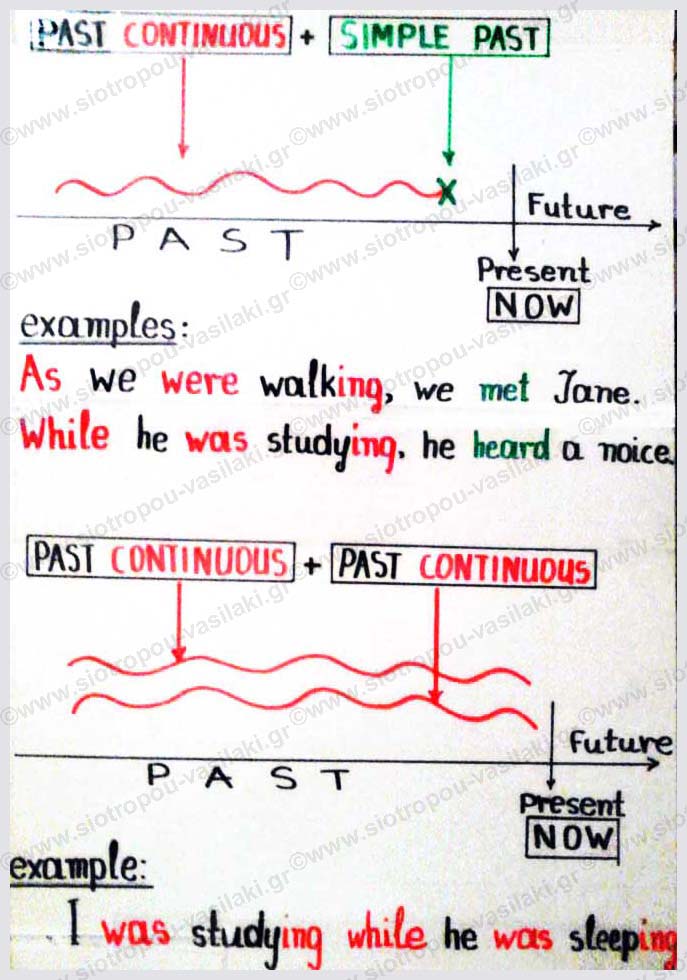 PAST CONTINUOUS + SIMPLE PAST
Future
PAST
Present
NOW
examples:
As we were walking, we met Jane.
While he was studying, he heard a noice.
PAST CONTINUOUS + PAST CONTINUOUS
Future
PAST
Present
NOW
example:
I was studying while he was sleeping
©www.siotropou-vasilaki.gr